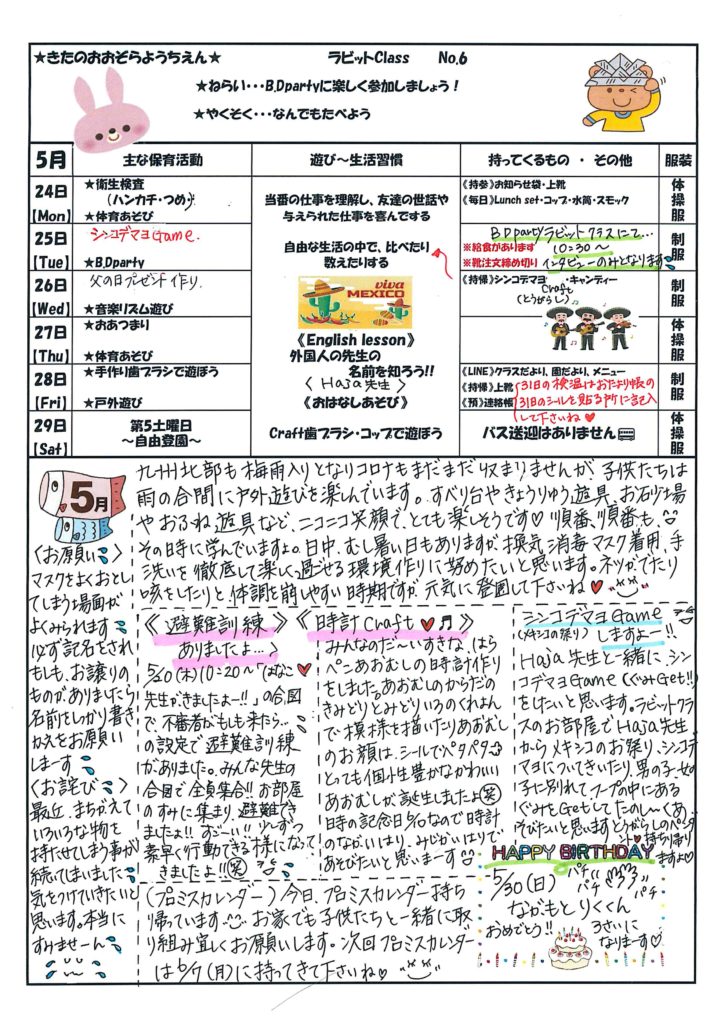 ★きたのおおぞらようちえん★ ラビットClass No.6
★ねらい・・・B.Dpartyに楽しく参加しましょう！
★やくそく・・・なんでもたべよう
5月 主な保育活動 遊び～生活習慣 持ってくるもの ・ その他 服装
24日 【Mon】
★衛生検査
（ハンカチ・つめ）
★体育あそび
当番の仕事を理解し、友達の世話や
与えられた仕事を喜んでする
《持参》お知らせ袋・上靴
《毎日》Lunch set・コップ・水筒・スモック
体操服
25日 【Tue】
シンコデマヨGame.
★B.Dparty
自由な生活の中で、比べたり
数えたりする
B.Dpartyラビットクラスにて…
※給食があります 10:30～
※靴注文締め切り インタビューのみとなります
制服
26日 【Wed】
父の日プレゼント作り.
★音楽リズム遊び
viva
MEXICO
《持帰》シンコデマヨ ・キャンディー
Craft
（とうがらし）
制服
27日 【Thu】
★おあつまり
★体育あそび
《English lesson》
外国人の先生の
名前を知ろう!!
〈 Haja先生 〉
体操服
28日 【Fri】
★手作り歯ブラシで遊ぼう
★戸外遊び
《おはなしあそび》
《LINE》クラスだより、園だより、メニュー
《持帰》上靴
《預》連絡帳
31日の検温はおたより帳の
31日のシールを貼る所に記入
して下さいね♥
制服
29日 【Sat】
第5土曜日
～自由登園～
Craft歯ブラシ・コップで遊ぼう
バス送迎はありません
体操服
5月
九州北部も梅雨入りとなりコロナもまだまだ収まりませんが、子供たちは
雨の合間に戸外遊びを楽しんでいます。すべり台やきょうりゅう遊具、お砂場
や おふね遊具など、ニコニコ笑顔で、とても楽しそうです♡順番、順番も、
その時に学んでいますよ。日中、むし暑い日もありますが、換気、消毒、マスク着用、手
洗いを徹底して楽しく過ごせる環境作りに努めたいと思います。ネツがでたり
咳をしたりと体調を崩しやすい時期ですが、元気に登園して下さいね♥
〈お願い〉
マスクをよくおとし
てしまう場面が
よくみられます
必ず記名をされ
もしも、お譲りの
ものが、ありましたら
名前をしっかり書き
かえをお願い
しまーす
〈お詫び〉
最近、まちがえて
いろいろな物を
持たせてしまう事が
続いてしまいました
気をつけていきたいと
思います。本当に
すみませーん
《避難訓練
ありましたよ…》
5/20(木)10:20～「はなこ
先生がきましたよー!!」の合図
で、不審者がもしも来たら…
の設定で避難訓練
がありました。みんな先生の
合図で全員集合!!お部屋
のすみに集まり、避難でき
ましたよ!!すごーい!!少しずつ
素早く行動できる様になって
きましたよ!!㊗
《時計Craft♥♫》
みんなのだ～いすきな、はら
ぺこあおむしの時計作り
をしました。あおむしのからだの
きみどりとみどりいろのくれよん
で模様を描いたりあおむし
のお顔は、シールでペタペタ
とっても個性豊かなかわいい
あおむしが誕生しましたよ㊗
時の記念日も近いなので時計
のながいはり、みじかいはりで
あそびたいと思いまーす
シンコデマヨGame
（メキシコの祭り）しますよー!!
Haja先生と一緒に、シン
コデマヨGame（ぐみGet!!）
をしたいと思います。ラビットクラ
スのお部屋でHaja先生
からメキシコのお祭り、シンコデ
マヨについてきいたり、男の子、女の
子に別れてフープの中にある
ぐみをGetしてたのし～くあ
そびたいと思います
とうがらしのペンダ
ント持ち帰り
ますよ♡
HAPPY BIRTHDAY
5/30(日) パチパチパチ
ながもと りくくん
おめでとう!!
3さいに
なりまーす♡
（プロミスカレンダー）今日、プロミスカレンダー持ち
帰っています。お家でも子供たちと一緒に取
り組み宜しくお願いします。次回プロミスカレンダー
は6/7(月)に持ってきて下さいね♡